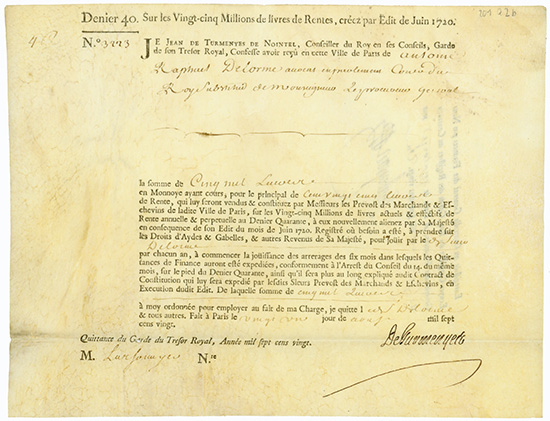 Denier 40. Sur les Vingt-cinq Millions de livres de Rentes, créez par Edit de Juin 1720.
N.º 3223
JE JEAN DE TURMENYES DE NOINTEL, Conseiller du Roy en ses Conseils, Garde
de son Tresor Royal, Confesse avoir reçû en cette Ville de Paris de antoine
Raphael Delorme avocat en parlement Con.er du
Roy substitut de monseigneur le procureur general
la somme de Cinq mil Livres
en Monnoye ayant cours, pour le principal de Cent vingt cinq livres
de Rente, qui luy seront vendus & constituez par Messieurs les Prevost des Marchands & Es-
chevins de ladite Ville de Paris, sur les Vingt-cinq Millions de livres actuels & effectifs de
Rente annuelle & perpetuelle au Denier Quarante, à eux nouvellement alienez par Sa Majesté
en consequence de son Edit du mois de Juin 1720. Registré où besoin a esté, à prendre sur
les Droits d'Aydes & Gabelles, & autres Revenus de Sa Majesté, pour joüir par le
Delorme
par chacun an, à commencer la joüissance des arrerages des six mois dans lesquels les Quit-
tances de Finance auront esté expediées, conformement à l'Arrest du Conseil du 14. du même
mois, sur le pied du Denier Quarante, ainsi qu'il sera plus au long expliqué audit Contract de
Constitution qui luy sera expedié par lesdits Sieurs Prevost des Marchands & Eschevins, en
Execution dudit Edit. De laquelle somme de cinq mil Livres
à moy ordonnée pour employer au fait de ma Charge, je quitte l Delorme
& tous autres. Fait à Paris le jour de aoust mil sept
cens vingt.
DeTurmenyes
Quittance du Garde du Tresor Royal, Année mil sept cens vingt.
M. N.re